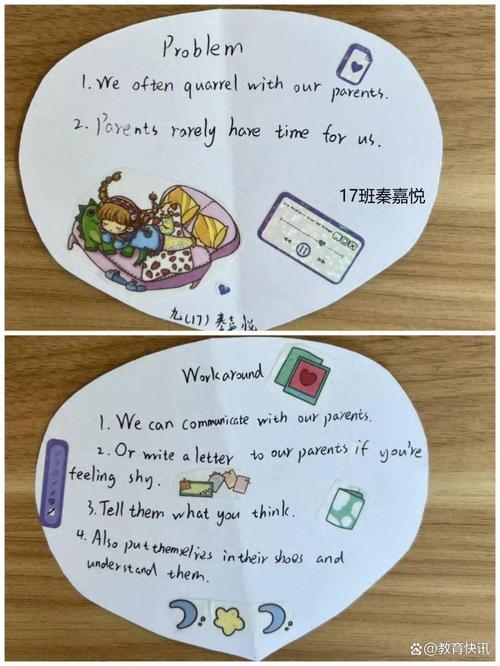 Problem
1. We often quarrel with our parents.
2. Parents rarely have time for us.
17班秦嘉悦
九(17) 秦嘉悦
Workaround
1. We can communicate with our parents.
2. Or write a letter to our parents if you're
feeling shy.
3. Tell them what you think.
4. Also put themselies in their shoes and
understand them.
@教育快讯